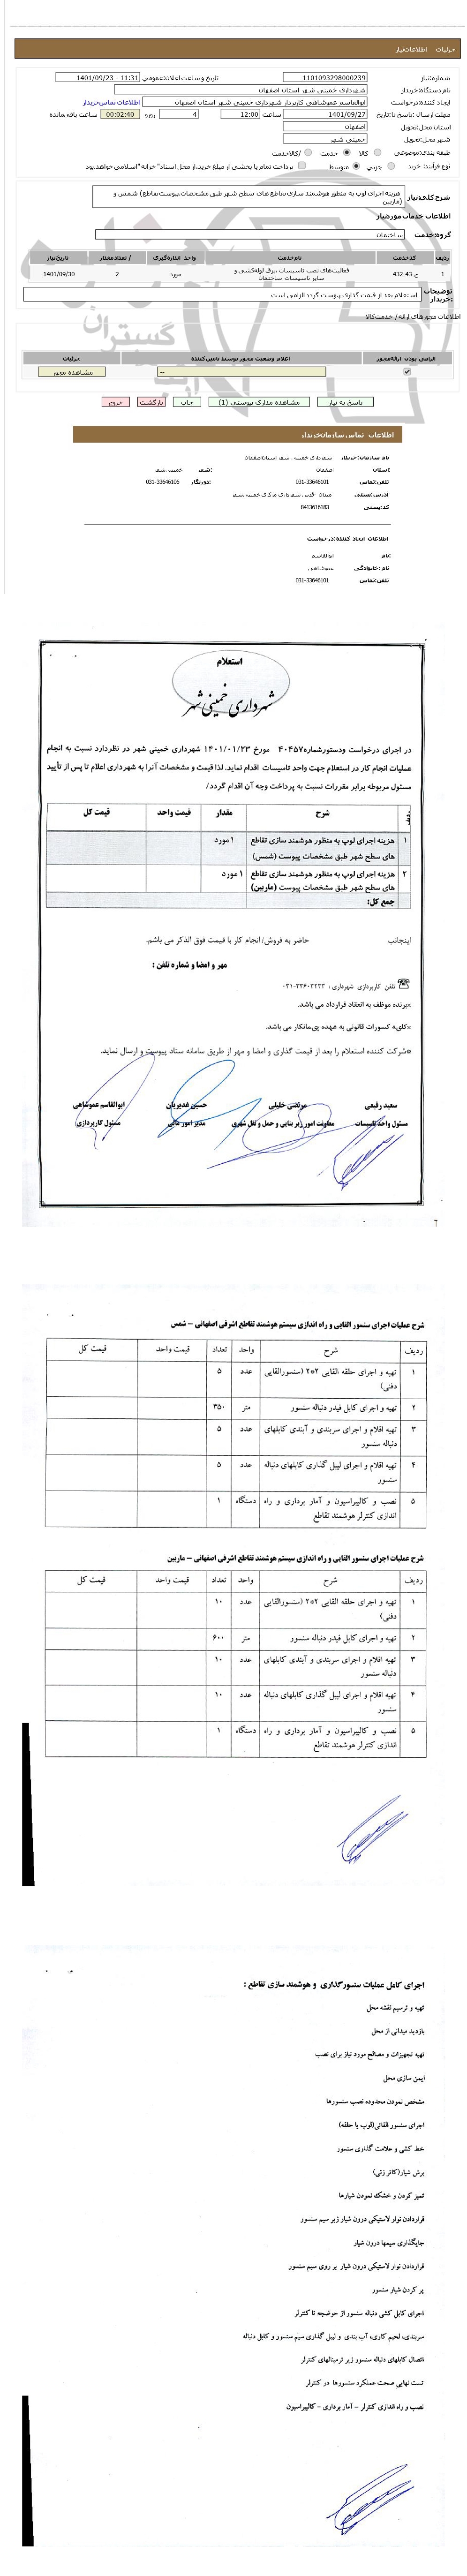 جزئیات اطلاعات نیاز
شماره نیاز: 1101093298000239
تاریخ و ساعت اعلان عمومی: 1401/09/23 - 11:31
نام دستگاه خریدار: شهرداری خمینی شهر استان اصفهان
ایجاد کننده درخواست: ابوالقاسم عموشاهی کارپرداز شهرداری خمینی شهر استان اصفهان اطلاعات تماس خریدار
مهلت ارسال پاسخ تا تاریخ: 1401/09/27 ساعت 12:00 4 روز و 00:02:40 ساعت باقی مانده
استان محل تحویل: اصفهان
شهر محل تحویل: خمینی شهر
طبقه بندی موضوعی: کالا خدمت کالا/خدمت
نوع فرآیند خرید: جزیی متوسط پرداخت تمام یا بخشی از مبلغ خرید،از محل "اسناد خزانه اسلامی" خواهد بود.
شرح کلی نیاز: هزینه اجرای لوپ به منظور هوشمند سازی تقاطع های سطح شهر طبق مشخصات پیوست(تقاطع) شمس و
ماربین)
اطلاعات خدمات مورد نیاز
گروه خدمت: ساختمان
ردیف کد خدمت نام خدمت واحد اندازه گیری تعداد / مقدار تاریخ نیاز
1 ج-43-432 فعالیت‌های نصب تاسیسات ،برق لوله‌کشی و سایر تاسیسات ساختمان مورد 2 1401/09/30
توضیحات خریدار: استعلام بعد از قیمت گذاری پیوست گردد الزامی است
اطلاعات مجوزهای ارائه خدمت / کالا
الزامی بودن ارائه مجوز اعلام وضعیت مجوز توسط تامین کننده جزئیات
-- مشاهده مجوز
پاسخ به نیاز مشاهده مدارک پیوستی (1) چاپ بازگشت خروج
اطلاعات تماس سازمان خریدار
نام سازمان خریدار: شهرداری خمینی شهر استان اصفهان
استان: اصفهان شهر: خمینی شهر
تلفن تماس: 031-33646101 دورنگار: 031-33646106
آدرس پستی: میدان قدس شهرداری مرکزی خمینی شهر
کد پستی: 8413616183
اطلاعات ایجاد کننده درخواست:
نام: ابوالقاسم
نام خانوادگی: عموشاهی
تلفن تماس: 031-33646101
استعلام
شهرداری خمینی شهر
در اجرای درخواست ودستورشماره۴۰۴۵۷ مورخ ۱۴۰۱/۰۱/۲۳ شهرداری خمینی شهر در نظردارد نسبت به انجام
عملیات انجام کار در استعلام جهت واحد تاسیسات اقدام نماید. لذا قیمت و مشخصات آنرا به شهرداری اعلام تا پس از تأیید
مسئول مربوطه برابر مقررات نسبت به پرداخت وجه آن اقدام گردد/
ردیف شرح مقدار قیمت واحد قیمت کل
۱ هزینه اجرای لوپ به منظور هوشمند سازی تقاطع ۱مورد
های سطح شهر طبق مشخصات پیوست (شمس)
۲ هزینه اجرای لوپ به منظور هوشمند سازی تقاطع ۱مورد
های سطح شهر طبق مشخصات پیوست (ماربین)
جمع کل:
اینجانب حاضر به فروش/ انجام کار با قیمت فوق الذکر می باشم.
مهر و امضا و شماره تلفن :
تلفن کارپردازی شهرداری :
×برنده موظف به انعقاد قرارداد می باشد.
×کلیه کسورات قانونی به عهده پیمانکار می باشد.
¤شرکت کننده استعلام را بعد از قیمت گذاری و امضا و مهر از طریق سامانه ستاد پیوست و ارسال نماید.
سعید رفیعی مرتضی خلیلی حسین غدیریان ابوالقاسم عموشاهی
مسئول واحد تاسیسات معاونت امور زیر بنایی و حمل و نقل شهری مدیر امور مالی مسئول کارپردازی
شرح عملیات اجرای سنسور القایی و راه اندازی سیستم هوشمند تقاطع اشرفی اصفهانی – شمس
ردیف شرح واحد تعداد قیمت واحد قیمت کل
۱ تهیه و اجرای حلقه القایی ۲*۲ (سنسورالقایی دفنی) عدد ۵
۲ تهیه و اجرای کابل فیدر دنباله سنسور متر ۳۵۰
۳ تهیه اقلام و اجرای سربندی و آبندی کابلهای دنباله سنسور عدد ۵
۴ تهیه اقلام و اجرای لیبل گذاری کابلهای دنباله سنسور عدد ۵
۵ نصب و کالیبراسیون و آمار برداری و راه اندازی کنترلر هوشمند تقاطع دستگاه ۱
شرح عملیات اجرای سنسور القایی و راه اندازی سیستم هوشمند تقاطع اشرفی اصفهانی – ماربین
ردیف شرح واحد تعداد قیمت واحد قیمت کل
۱ تهیه و اجرای حلقه القایی ۲*۲ (سنسورالقایی دفنی) عدد ۱۰
۲ تهیه و اجرای کابل فیدر دنباله سنسور متر ۶۰۰
۳ تهیه اقلام و اجرای سربندی و آبندی کابلهای دنباله سنسور عدد ۱۰
۴ تهیه اقلام و اجرای لیبل گذاری کابلهای دنباله سنسور عدد ۱۰
۵ نصب و کالیبراسیون و آمار برداری و راه اندازی کنترلر هوشمند تقاطع دستگاه ۱
اجرای کامل عملیات سنسورگذاری و هوشمند سازی تقاطع :
تهیه و ترسیم نقشه محل
بازدید میدانی از محل
تهیه تجهیزات و مصالح مورد نیاز برای نصب
ایمن سازی محل
مشخص نمودن محدوده نصب سنسورها
اجرای سنسور القائی(لوپ یا حلقه)
خط کشی و علامت گذاری سنسور
برش شیار(کاتر زنی)
تمیز کردن و خشک نمودن شیارها
قراردادن نوار لاستیکی درون شیار زیر سیم سنسور
جایگذاری سیمها درون شیار
قراردادن نوار لاستیکی درون شیار بر روی سیم سنسور
پر کردن شیار سنسور
اجرای کابل کشی دنباله سنسور از حوضچه تا کنترلر
سربندی، لحیم کاری، آب بندی و لیبل گذاری سیم سنسور و کابل دنباله
اتصال کابلهای دنباله سنسور زیر ترمینالهای کنترلر
تست نهایی صحت عملکرد سنسورها در کنترلر
نصب و راه اندازی کنترلر – آمار برداری – کالیبراسیون